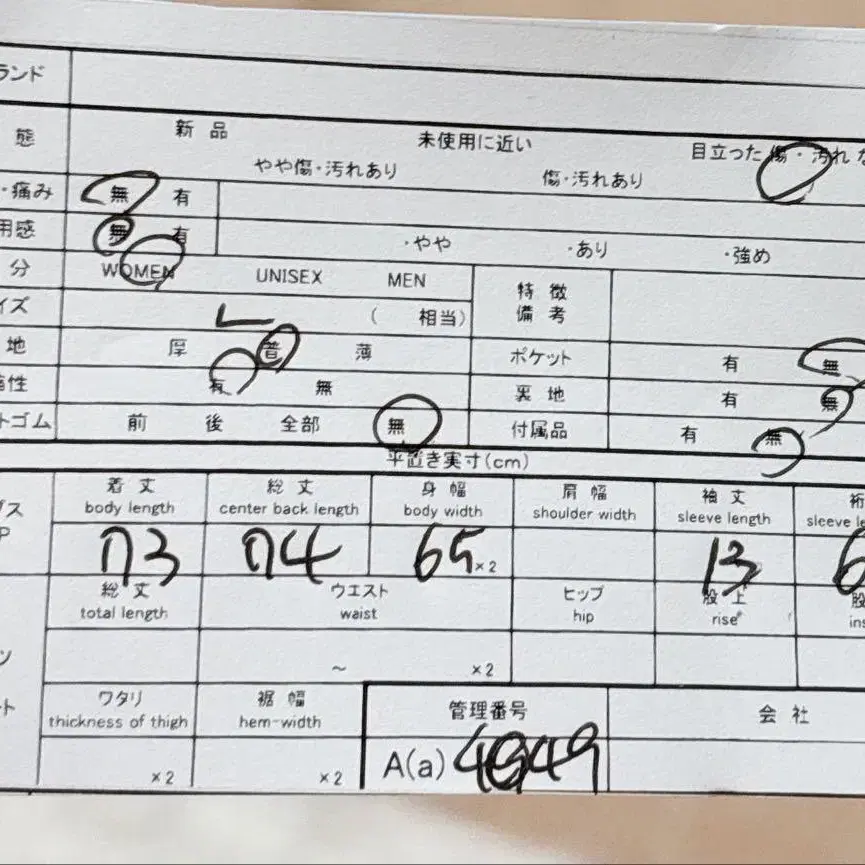 ランド
態 新品 未使用に近い 目立った傷・汚れな
やや傷・汚れあり 傷・汚れあり
・痛み 無 有
用感 無 有 ・やや ・あり ・強め
分 WOMEN UNISEX MEN 特徴
備考
イズ L ( 相当)
地 厚 普 薄 ポケット 有 無
性 有 無 裏地 有 無
トゴム 前 後 全部 無 付属品 有 無
平置き実寸(cm)
着丈 総丈 身幅 肩幅 袖丈 裄
body length center back length body width shoulder width sleeve length sleeve le
73 74 65 ×2 13 6
総丈 ウエスト ヒップ 股上 股
total length waist hip rise ins
~ ×2
ワタリ 裾幅 管理番号 会社
thickness of thigh hem-width
×2 ×2 A(a) 4949